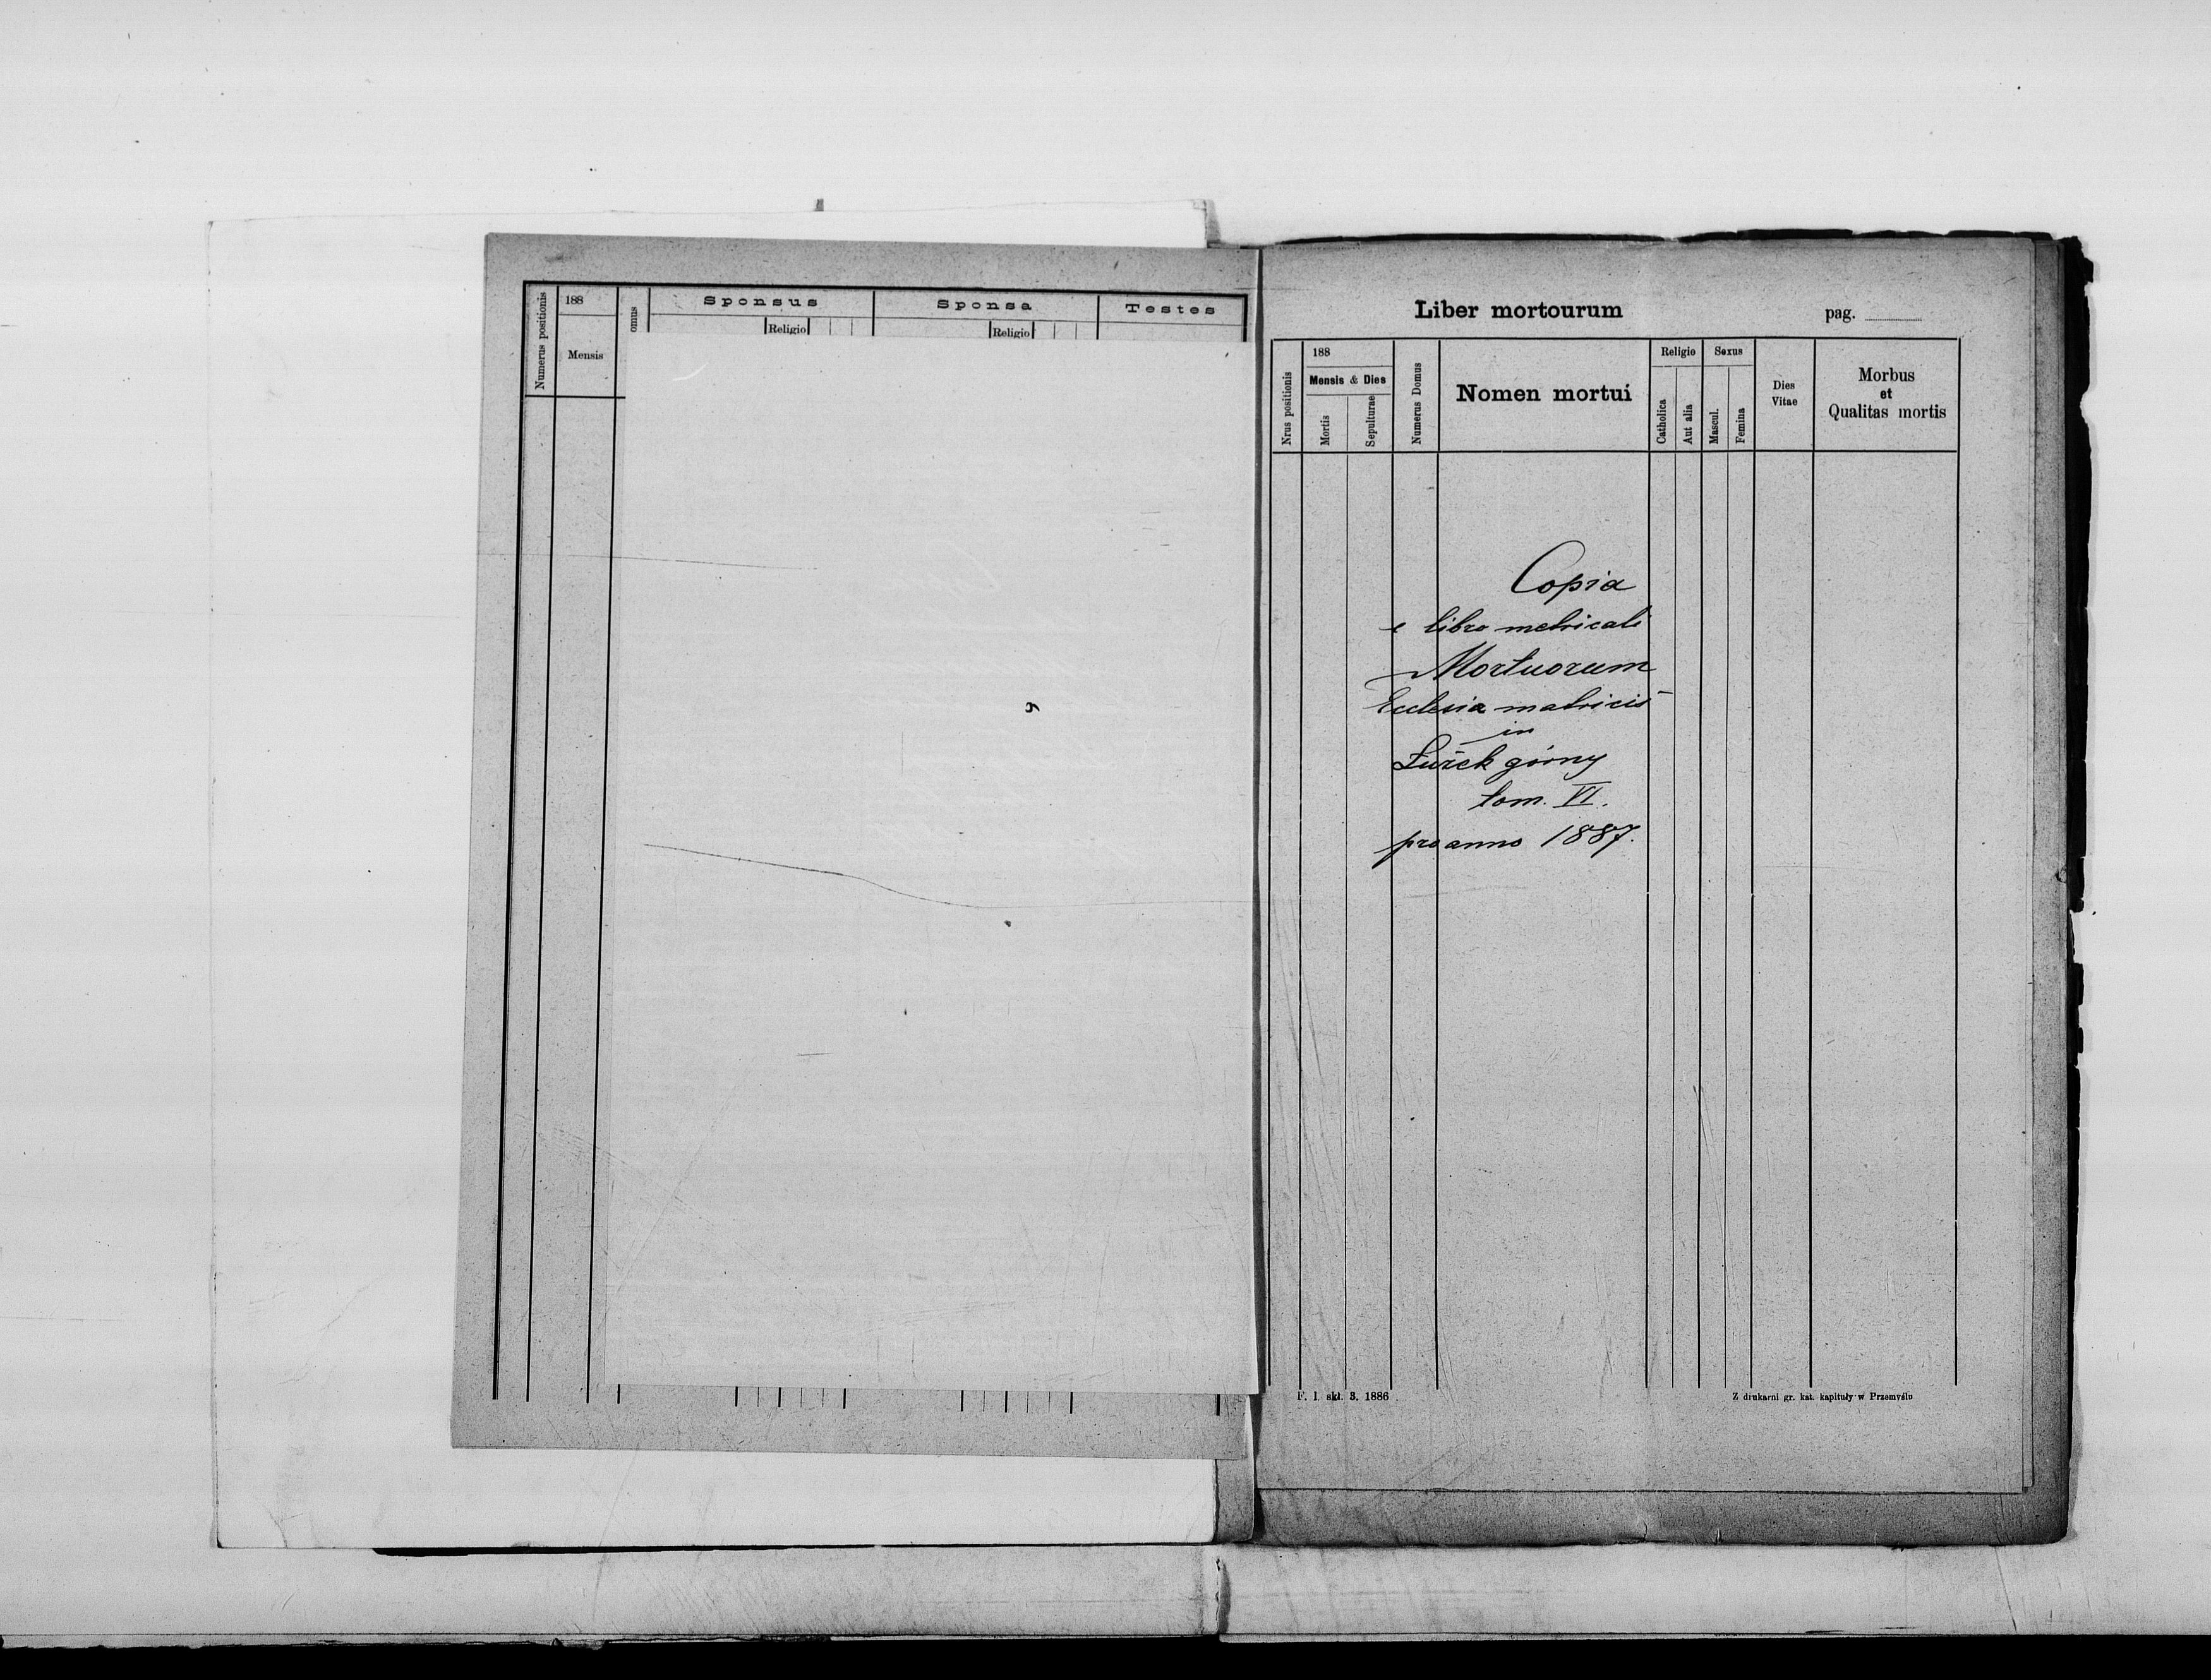 Numerus positionis
188
Mensis
omus
Sponsus
Religio
Sponsa
Religio
Testes
Liber mortourum
pag.
Nrus positionis
188
Mensis & Dies
Mortis
Sepulturae
Numerus Domus
Nomen mortui
Religio
Catholica
Aut alia
Sexus
Mascul.
Femina
Dies
Vitae
Morbus
et
Qualitas mortis
Copia
e libro metricali
Mortuorum
Ecclesia matricis
in
Łużek górny
tom. VI.
pro anno 1887.
F. I. skł. 3. 1886
Z drukarni gr. kat. kapituły w Przemyślu